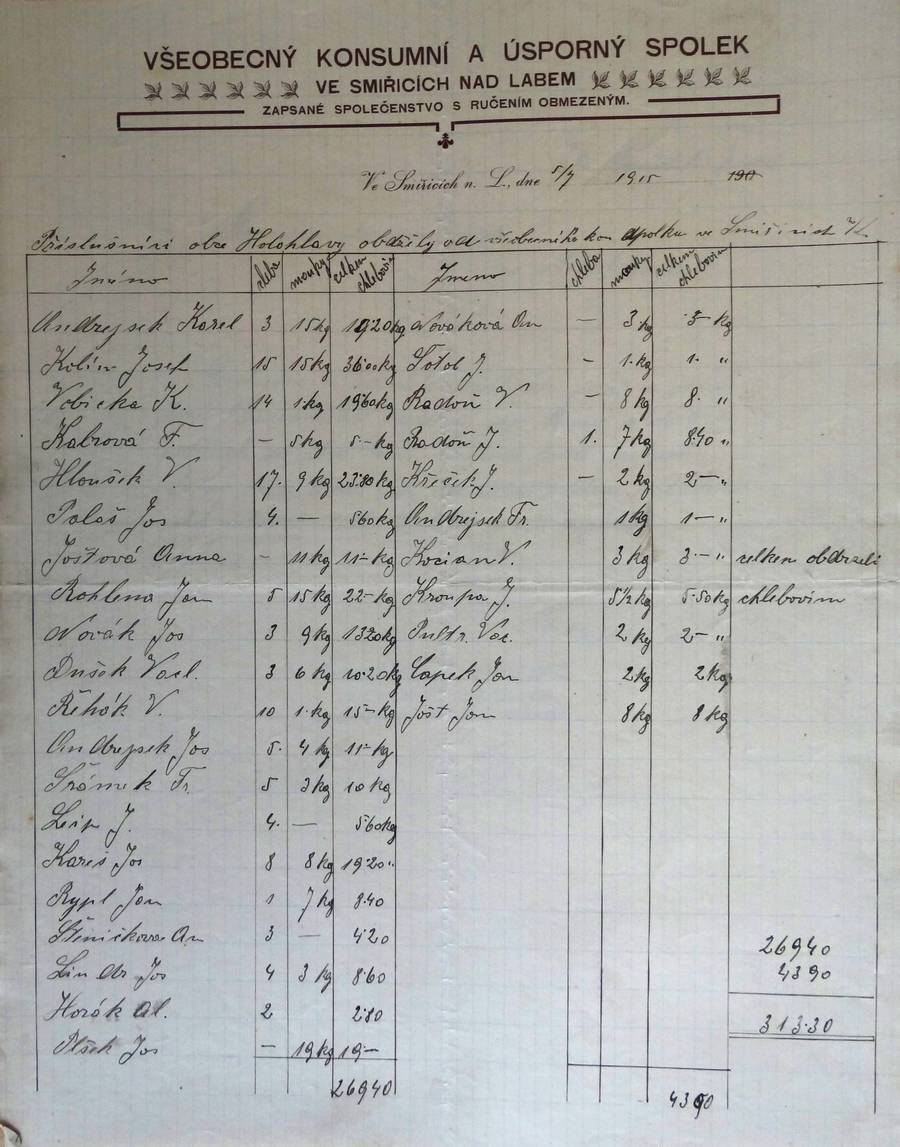 VŠEOBECNÝ KONSUMNÍ A ÚSPORNÝ SPOLEK
VE SMIŘICÍCH NAD LABEM
ZAPSANÉ SPOLEČENSTVO S RUČENÍM OBMEZENÝM.
Ve Smiřicích n. L., dne 5/7 1915 190
Příslušníci obce Holohlavy obdržely od všeobecního kon spolku ve Smiřicích
Jméno chleba mouky celkem chlebovin Jmeno chleba mouky celkem chlebovin
Andrejsek Karel 3 15 kg 19·20 kg Nováková An — 3 kg 3·— kg
Kolín Josef 15 15 kg 36·00 kg J. — 1· kg 1· "
K. 14 1· kg 19·60 kg Radoň V. — 8 kg 8· "
Kabrová F. — 5 kg 5·— kg Radoň J. 1. 7 kg 8·40 "
Hloušek V. 17. 9 kg 23·80 kg Křeček J. — 2 kg 2·— "
Jos 4. — 5·60 kg Andrejsek Fr. 1 kg 1·— "
Joštová Anna — 11 kg 11·— kg Kocian V. 3 kg 3·— " celkem obdrželi
Rohlena Jan 5 15 kg 22·— kg Kroupa J. 5½ kg 5·50 kg chlebovin
Novák Jos 3 9 kg 13·20 kg Pultr. Vac. 2 kg 2·— "
Dušek Vacl. 3 6 kg 10·20 kg Čapek Jan 2 kg 2 kg
Řehák V. 10 1· kg 15·— kg Jošt Jan 8 kg 8 kg
Andrejsek Jos 5· 4 kg 11·— kg
Šrámek Fr. 5 3 kg 10 kg
J. 4. — 5·60 kg
Kareš Jos 8 8 kg 19·20 "
Rypl Jan 1 7 kg 8·40
An 3 — 4·20
Lindr Jos 4 3 kg 8·60
Horák Al. 2 2·80
Plšek Jos — 19 kg 19·—
269 40 43 90
269 40
43 90
313·30